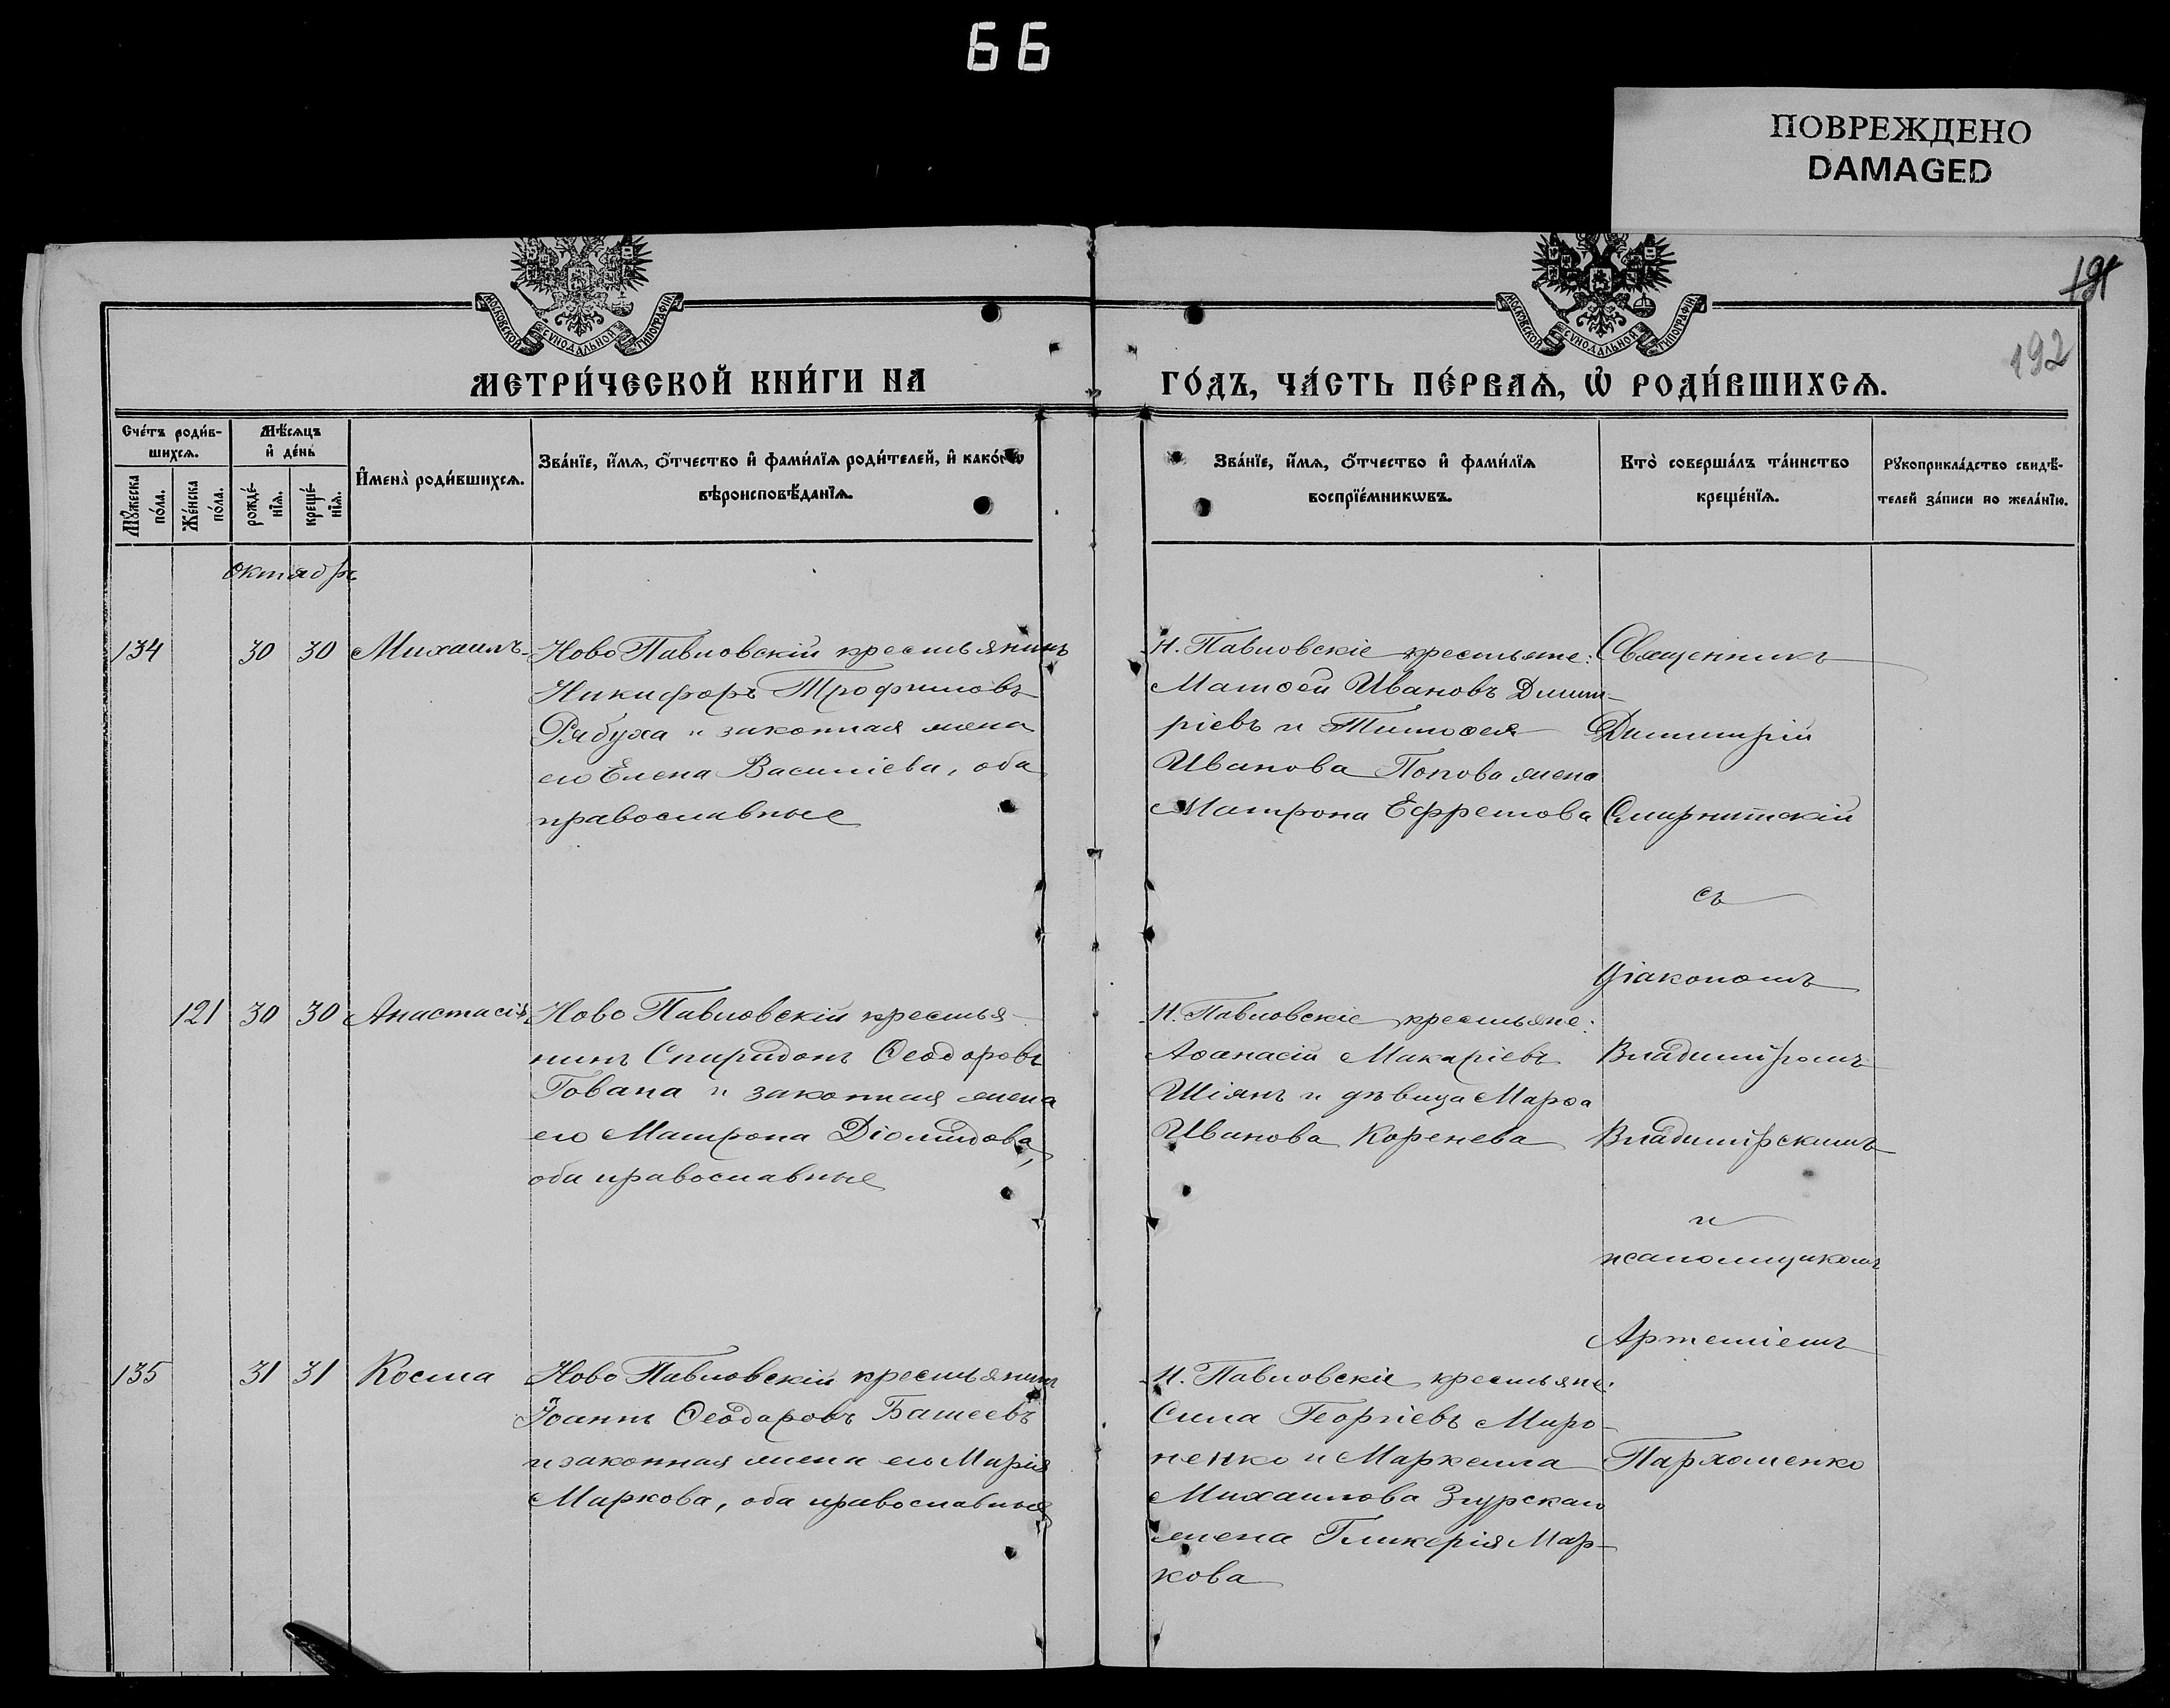 66
ПОВРЕЖДЕНО
DAMAGED
191
192
МОСКОВСКОЙ СУНОДАЛЬНОЙ ТИПОГРАФІИ
МОСКОВСКОЙ СУНОДАЛЬНОЙ ТИПОГРАФІИ
МЕТРИ́ЧЕСКОЙ КНИ́ГИ НА
ГО́ДЪ, ЧА́СТЬ ПЕ́РВАѦ, Ѿ РОДИ́ВШИХСѦ.
Сче́тъ роди́в-
шихсѧ.
Мѣ́сѧцъ
и҆ де́нь
Мꙋ́жеска
по́ла.
Же́нска
по́ла.
рожде́-
нїѧ.
креще́-
нїѧ.
И҆мена̀ роди́вшихсѧ.
Зва́нїе, и҆́мѧ, ѻ҆́тчество и҆ фами́лїѧ роди́телей, и҆ како́гѡ
вѣроисповѣ́данїѧ.
Зва́нїе, и҆́мѧ, ѻ҆́тчество и҆ фами́лїѧ
воспрїе́мникѡвъ.
Кто̀ соверша́лъ та́инство
креще́нїѧ.
Рꙋкоприкла́дство свидѣ́-
телей за́писи по жела́нїю.
октябрь
134 30 30 Михаилъ Ново Павловскій крестьянинъ
Никифоръ Трофимовъ
Рябуха и законная жена
его Елена Василіева, оба
православные
Н. Павловскіе крестьяне:
Матѳей Ивановъ Димит-
ріевъ и Тимоѳея
Иванова Попова жена
Матрона Ефремова
Священникъ
Димитрій
Смирнитскій
съ
діакономъ
Владиміромъ
Владимірскимъ
и
псаломщикомъ
Артеміемъ
Пархоменко
121 30 30 Анастасія Ново Павловскій крестья-
нинъ Спиридонъ Ѳеодоровъ
Гована и законная жена
его Матрона Діомидова,
оба православные
Н. Павловскіе крестьяне:
Аѳанасій Макаріевъ
Шіянъ и дѣвица Марѳа
Иванова Коренева
135 31 31 Косма Ново Павловскій крестьянинъ
Іоаннъ Ѳеодоровъ Башеевъ
и законная жена его Марія
Маркова, оба православные
Н. Павловскіе крестьяне:
Сила Георгіевъ Миро-
ненко и Маркелла
Михаилова Згурскаго
жена Гликерія Мар-
кова